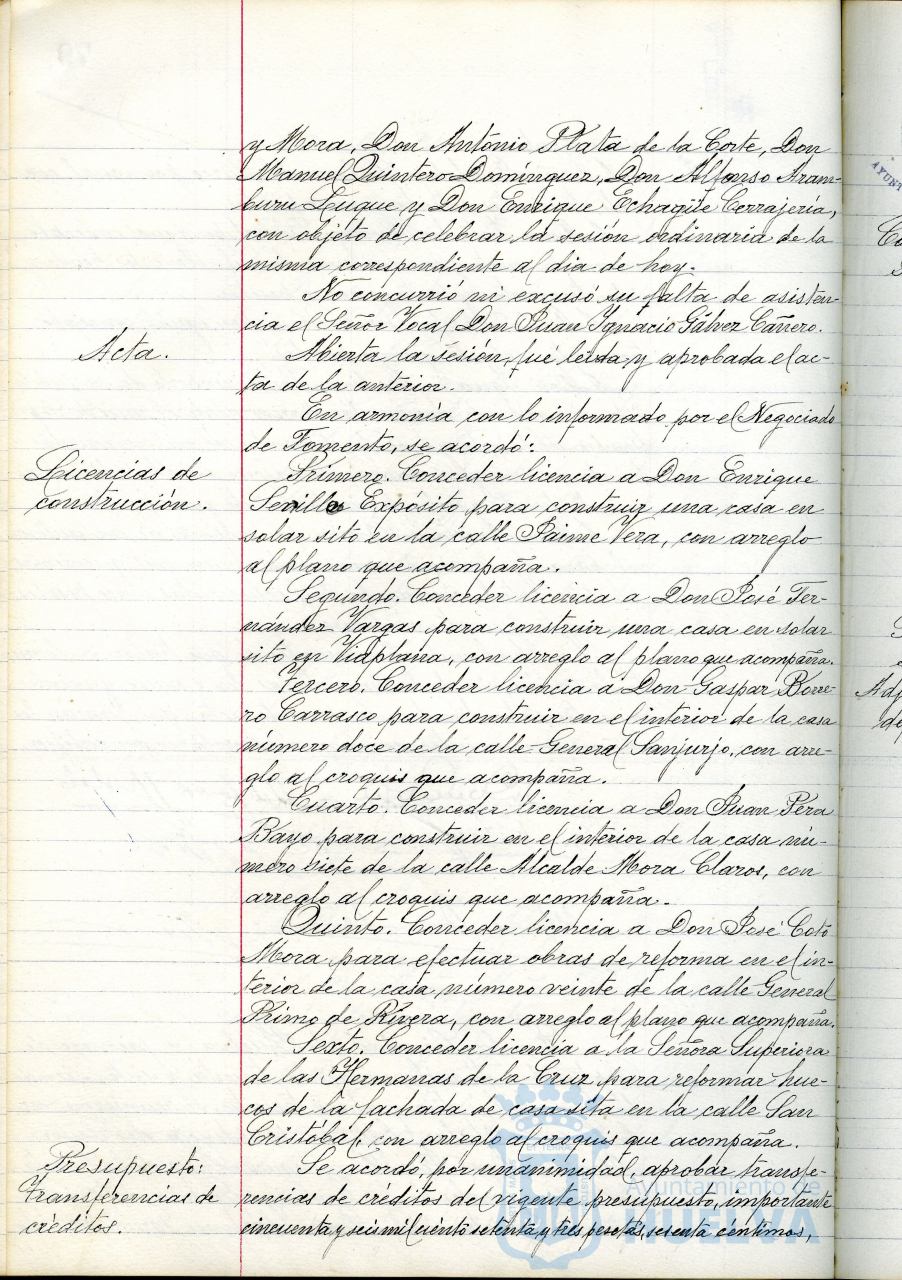 y Mora, Don Antonio Plata de la Corte, Don
Manuel Quintero Domínguez, Don Alfonso Aram-
buru Luque y Don Enrique Echagüe Cerrajería,
con objeto de celebrar la sesión ordinaria de la
misma correspondiente al dia de hoy.
No concurrió ni excusó su falta de asisten-
cia el Señor Vocal Don Juan Ygnacio Gálvez Cañero.
Acta.
Abierta la sesión, fué leida y aprobada el ac-
ta de la anterior.
En armonía con lo informado por el Negociado
de Fomento, se acordó:
Licencias de
construcción.
Primero. Conceder licencia a Don Enrique
Sevillo Expósito para construir una casa en
solar sito en la calle Jaime Vera, con arreglo
al plano que acompaña.
Segundo. Conceder licencia a Don José Fer-
nández Vargas para construir una casa en solar
sito en Viaplana, con arreglo al plano que acompaña.
Tercero. Conceder licencia a Don Gaspar Borre-
ro Carrasco para construir en el interior de la casa
número doce de la calle General Sanjurjo, con arre-
glo al croquis que acompaña.
Cuarto. Conceder licencia a Don Juan Pera
Bayo para construir en el interior de la casa nú-
mero siete de la calle Alcalde Mora Claros, con
arreglo al croquis que acompaña.
Quinto. Conceder licencia a Don José Coto
Mora para efectuar obras de reforma en el in-
terior de la casa número veinte de la calle General
Primo de Rivera, con arreglo al plano que acompaña.
Sexto. Conceder licencia a la Señora Superiora
de las Hermanas de la Cruz para reformar hue-
cos de la fachada de casa sita en la calle San
Cristóbal, con arreglo al croquis que acompaña.
Presupuesto:
Transferencias de
créditos.
Se acordó, por unanimidad, aprobar transfe-
rencias de créditos del vigente presupuesto, importante
cincuenta y seis mil ciento setenta y tres pesetas, sesenta céntimos,
Ayuntamiento de
HUELVA